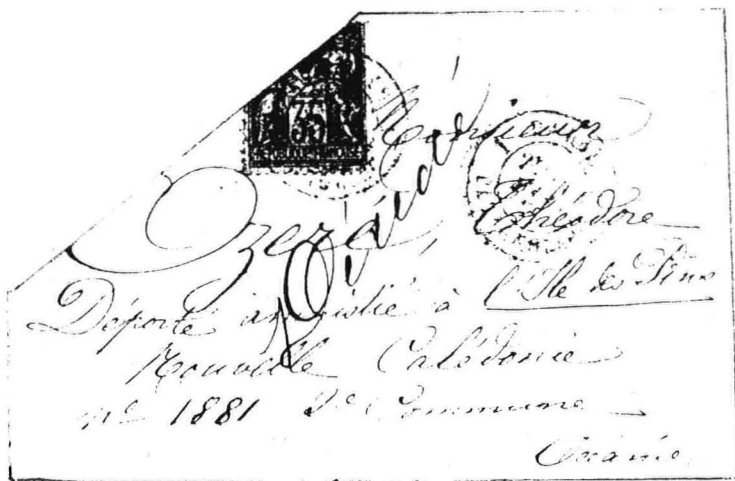 Monsieur
Ozeré Théodore
Déporté amnistié à l'Ile des Pins
Nouvelle Calédonie
n° 1881 2e Commune
Océanie
35